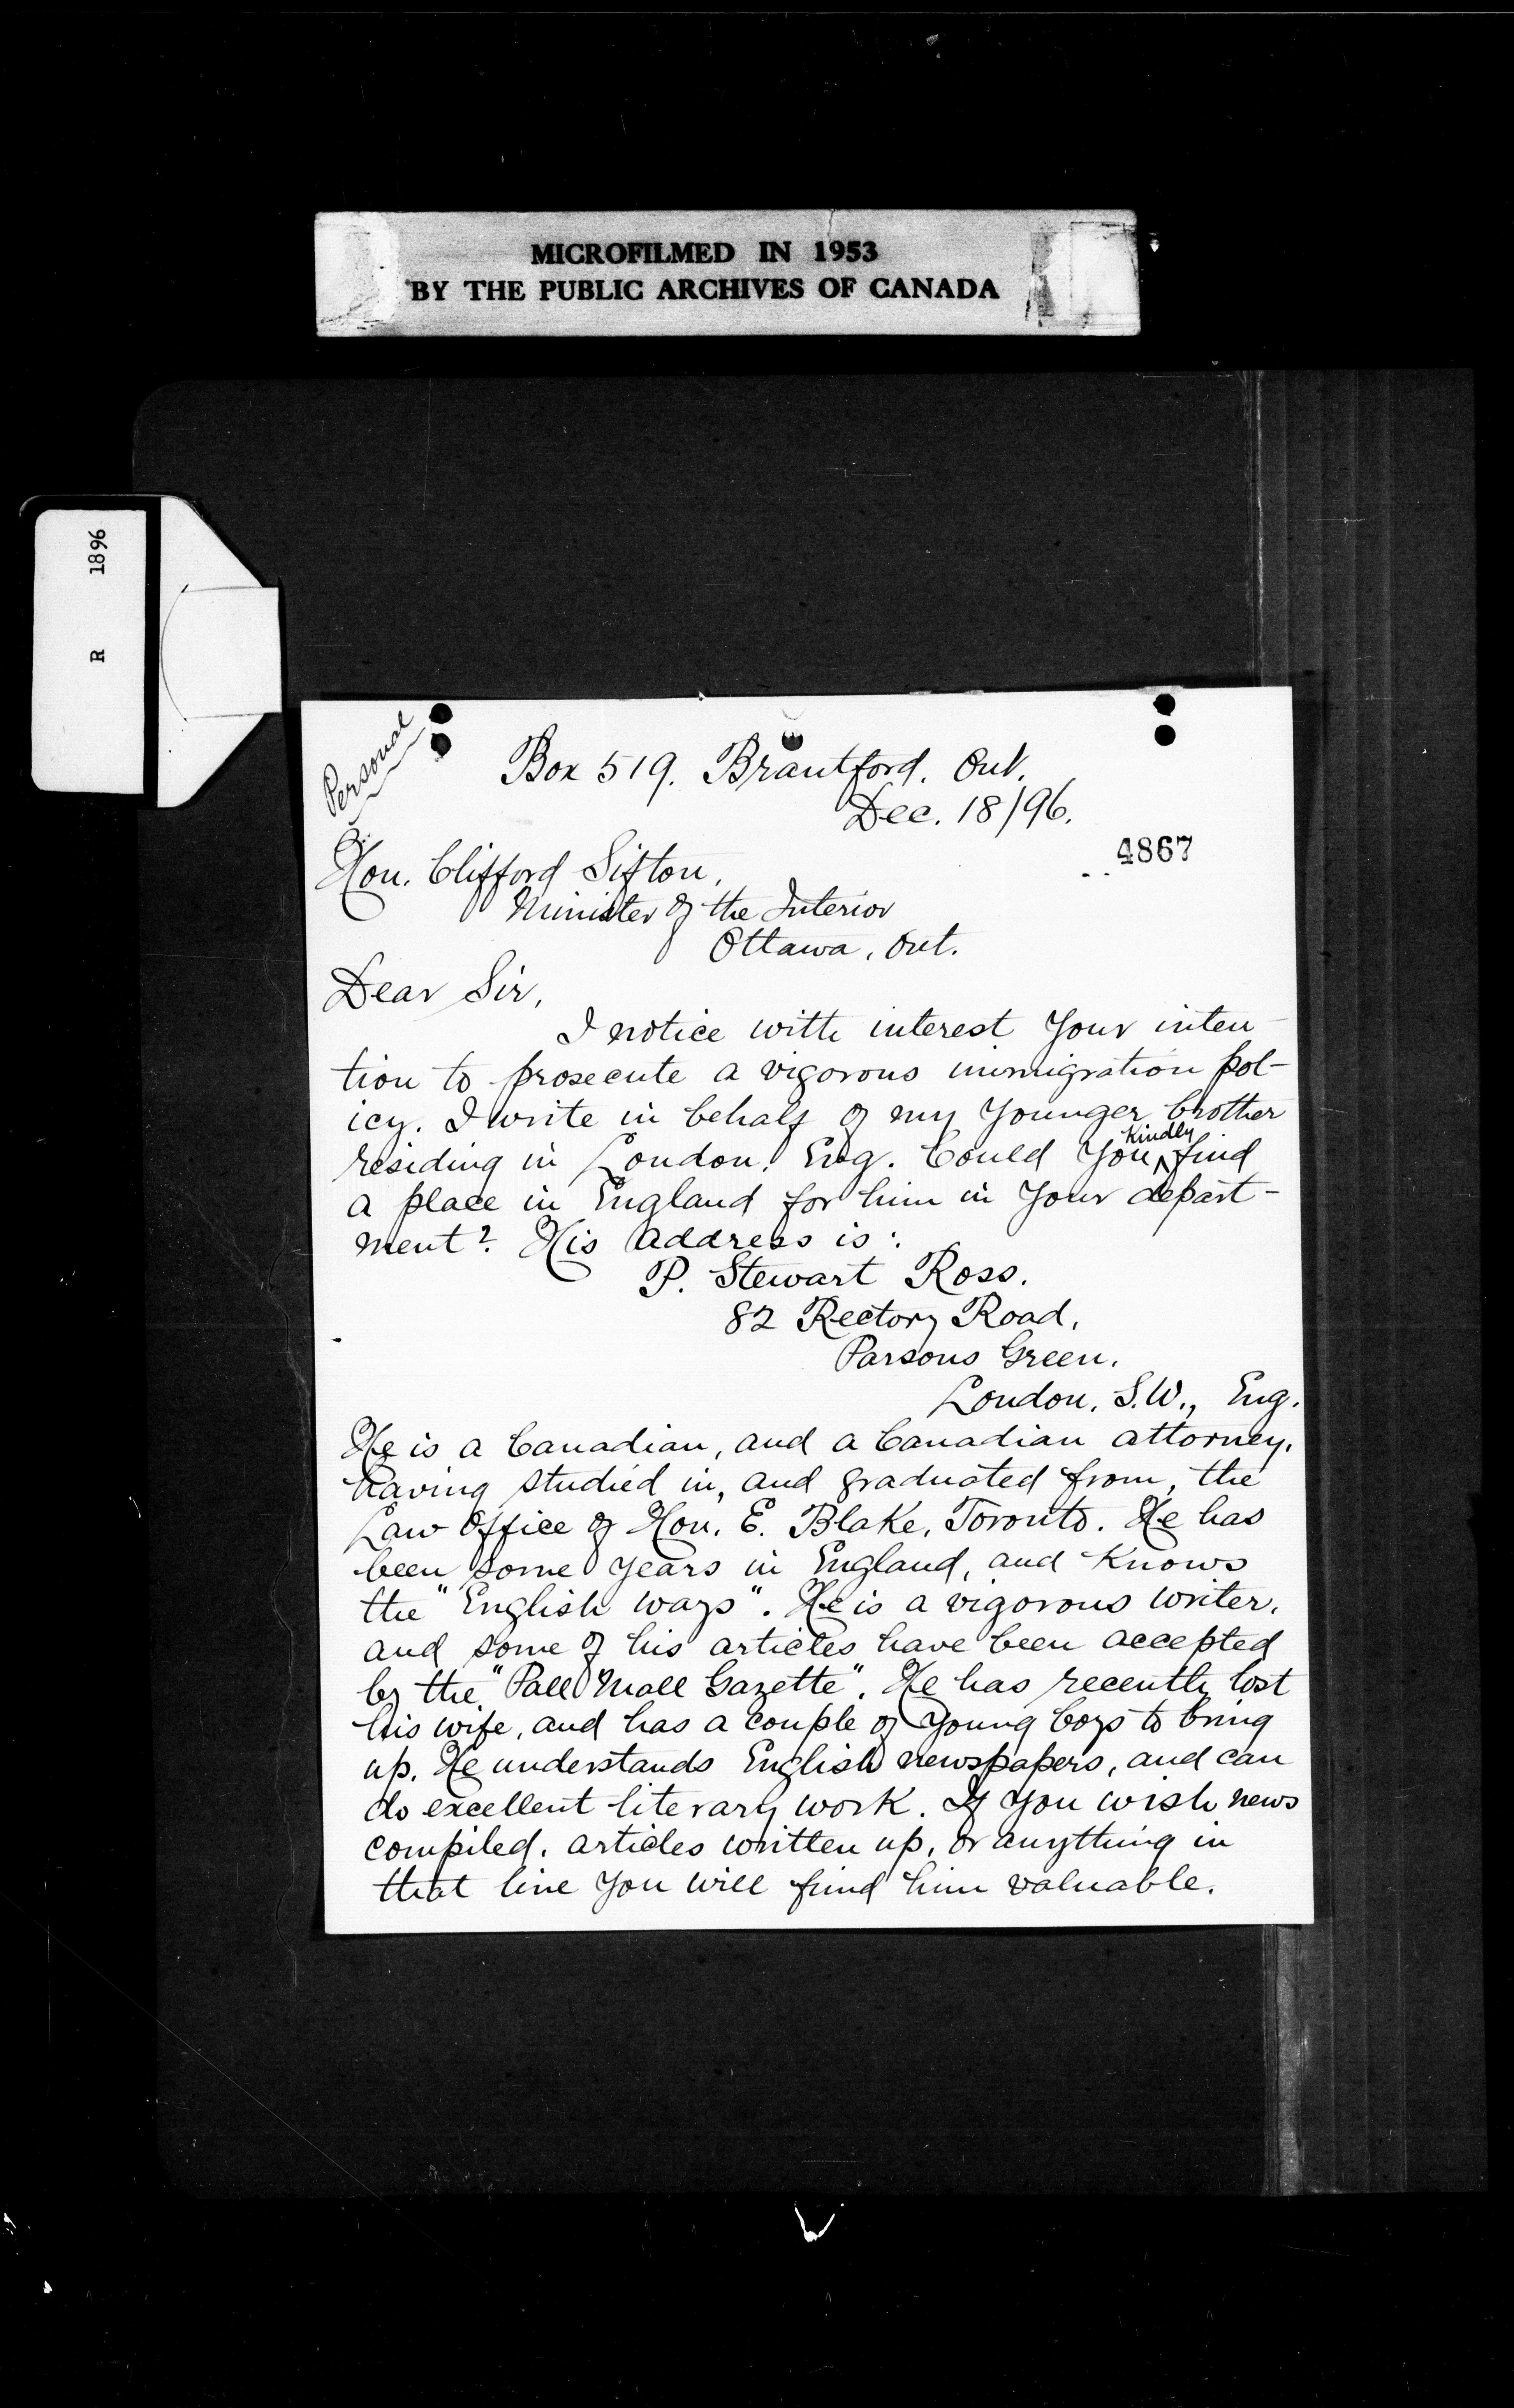 MICROFILMED IN 1953
BY THE PUBLIC ARCHIVES OF CANADA
R 1896
Personal
Box 519. Brantford. Ont.
Dec. 18/96.
4867
Hon. Clifford Sifton,
Minister of the Interior
Ottawa, Ont.
Dear Sir,
I notice with interest your inten-
tion to prosecute a vigorous immigration pol-
icy. I write in behalf of my younger brother
residing in London, Eng. Could you kindly find
a place in England for him in your depart-
ment? His address is:
P. Stewart Ross.
82 Rectory Road,
Parsons Green.
London, S.W., Eng.
He is a Canadian, and a Canadian attorney,
having studied in, and graduated from, the
Law Office of Hon. E. Blake, Toronto. He has
been some years in England, and knows
the "English ways". He is a vigorous writer,
and some of his articles have been accepted
by the "Pall Mall Gazette". He has recently lost
his wife, and has a couple of young boys to bring
up. He understands English newspapers, and can
do excellent literary work. If you wish news
compiled, articles written up, or anything in
that line you will find him valuable.